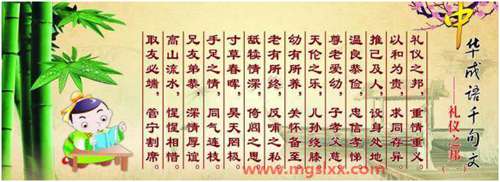 中华成语千句文
——礼仪之邦
礼仪之邦,重情重义
以和为贵,求同存异
推己及人,设身处地
温良恭俭,忠信孝悌
尊老爱幼,子孝父慈
天伦之乐,儿孙绕膝
幼有所养,关怀备至
老有所终,反哺之私
舐犊情深,倚闾之思
寸草春晖,昊天罔极
手足之情,同气连枝
兄友弟恭,深情厚谊
高山流水,惺惺相惜
取友必端,管宁割席
www.mgslxx.com